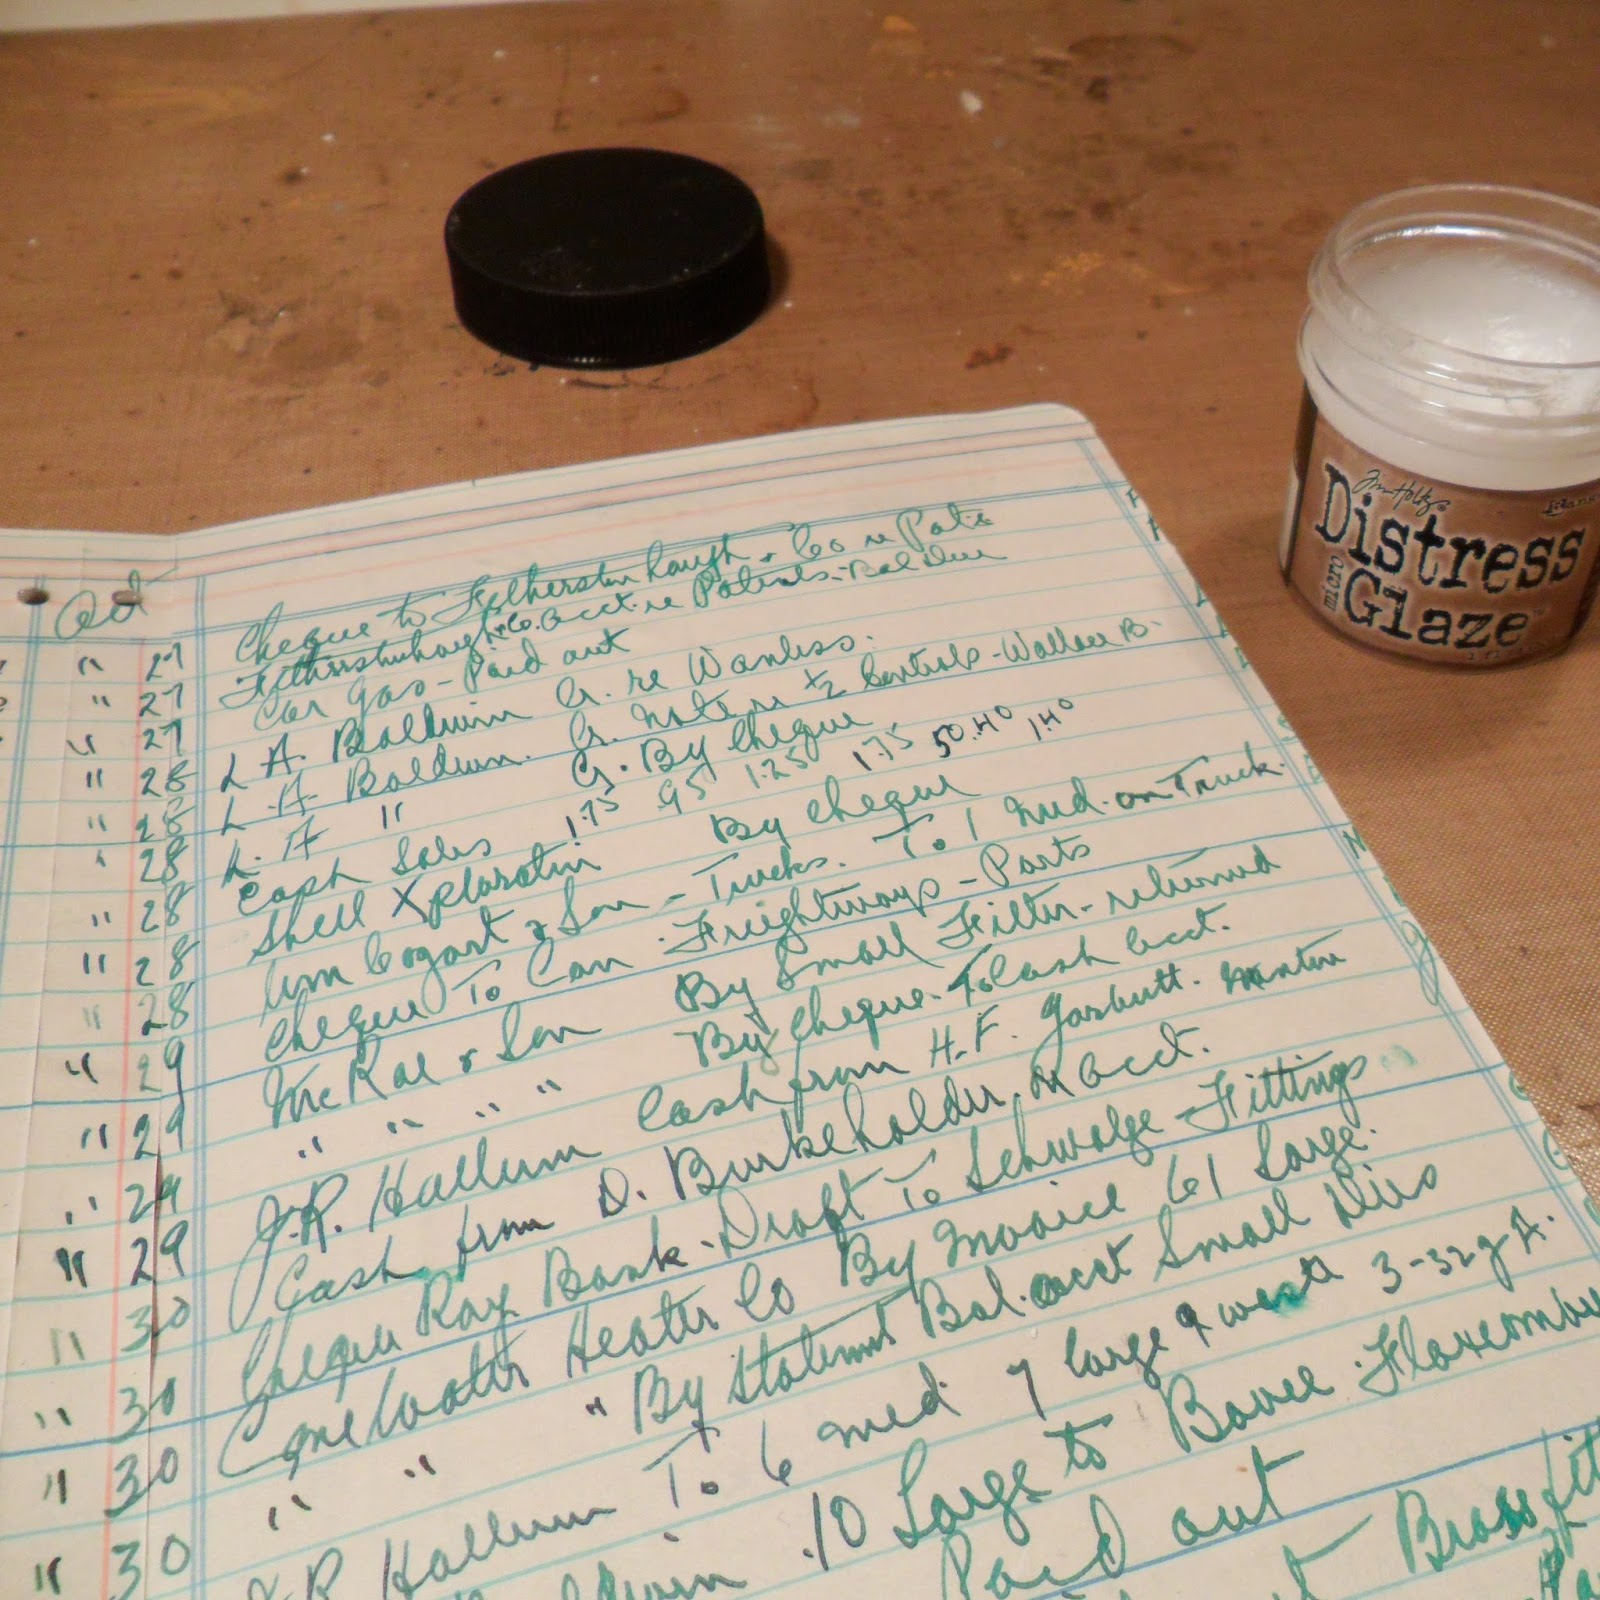 Oct
" 27 Cheque to Fetherstonhaugh & Co re Pats
" 27 Fetherstonhaugh & Co. acct. re Patents - Bal Due
" 27 Car Gas - Paid out
" 28 L A. Baldwin Cr. re Wanless.
" 28 L. A. Baldwin. Cr. Note re 1/2 Controls - Wallace B.
" 28 L. A " Cr. By Cheque
" 28 Cash Sales 1.75 .95 1.25 1.75 50.40 1.40
" 28 Shell Xploration By Cheque
" 28 Wm Bogart & Son - Trucks. To 1 Med. on Truck.
" 29 Cheque To Can. Freightways - Parts
" 29 McRae & Son By Small Filter - returned
" 29 " " " " By Cheque. To Cash Acct.
" 29 J.R. Hallum Cash from H.F. Garbutt.
" 30 Cash from D. Burkeholder, on acct.
" 30 Cheque Roy. Bank - Draft To Schwalge - Fittings
" 30 Water Heater Co By Invoice 61 Large.
" 30 " " " By Statement Bal. acct Small
J.R Hallum To 6 med 7 large 3-32
Baldwin 10 Large to
Paid out
Brass
Tim Holtz
Distress
micro
Glaze